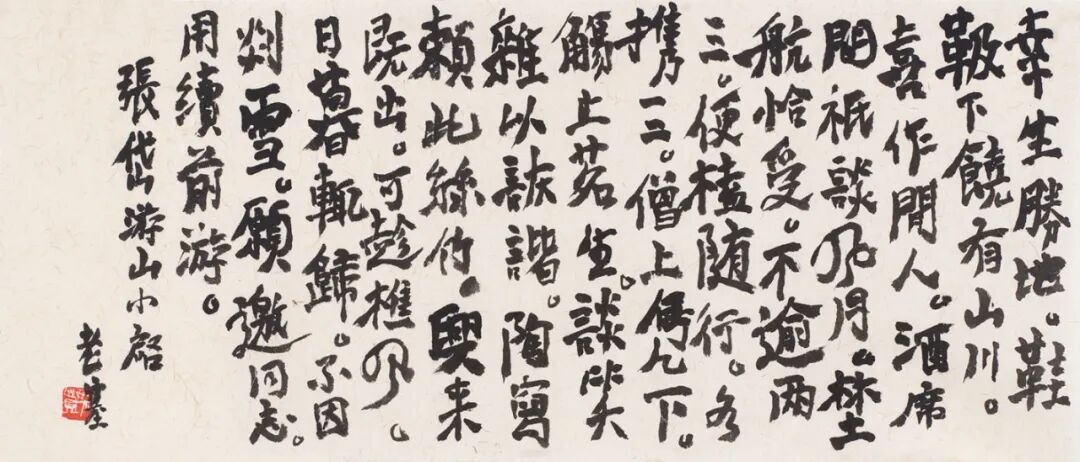 幸生勝地。鞋
靸下饒有山川。
喜作閒人。酒席
間祇談风月。埜
航恰受。不逾兩
三。便榼随行。各
携一二。僧上凫下。
觴止茗生。談笑
雜以詼諧。陶寫
賴此絲竹。興来
既出。可趁樵风。
日暮輒歸。不因
剡雪。願邀同志。
用續前游。
張岱游山小啓
老